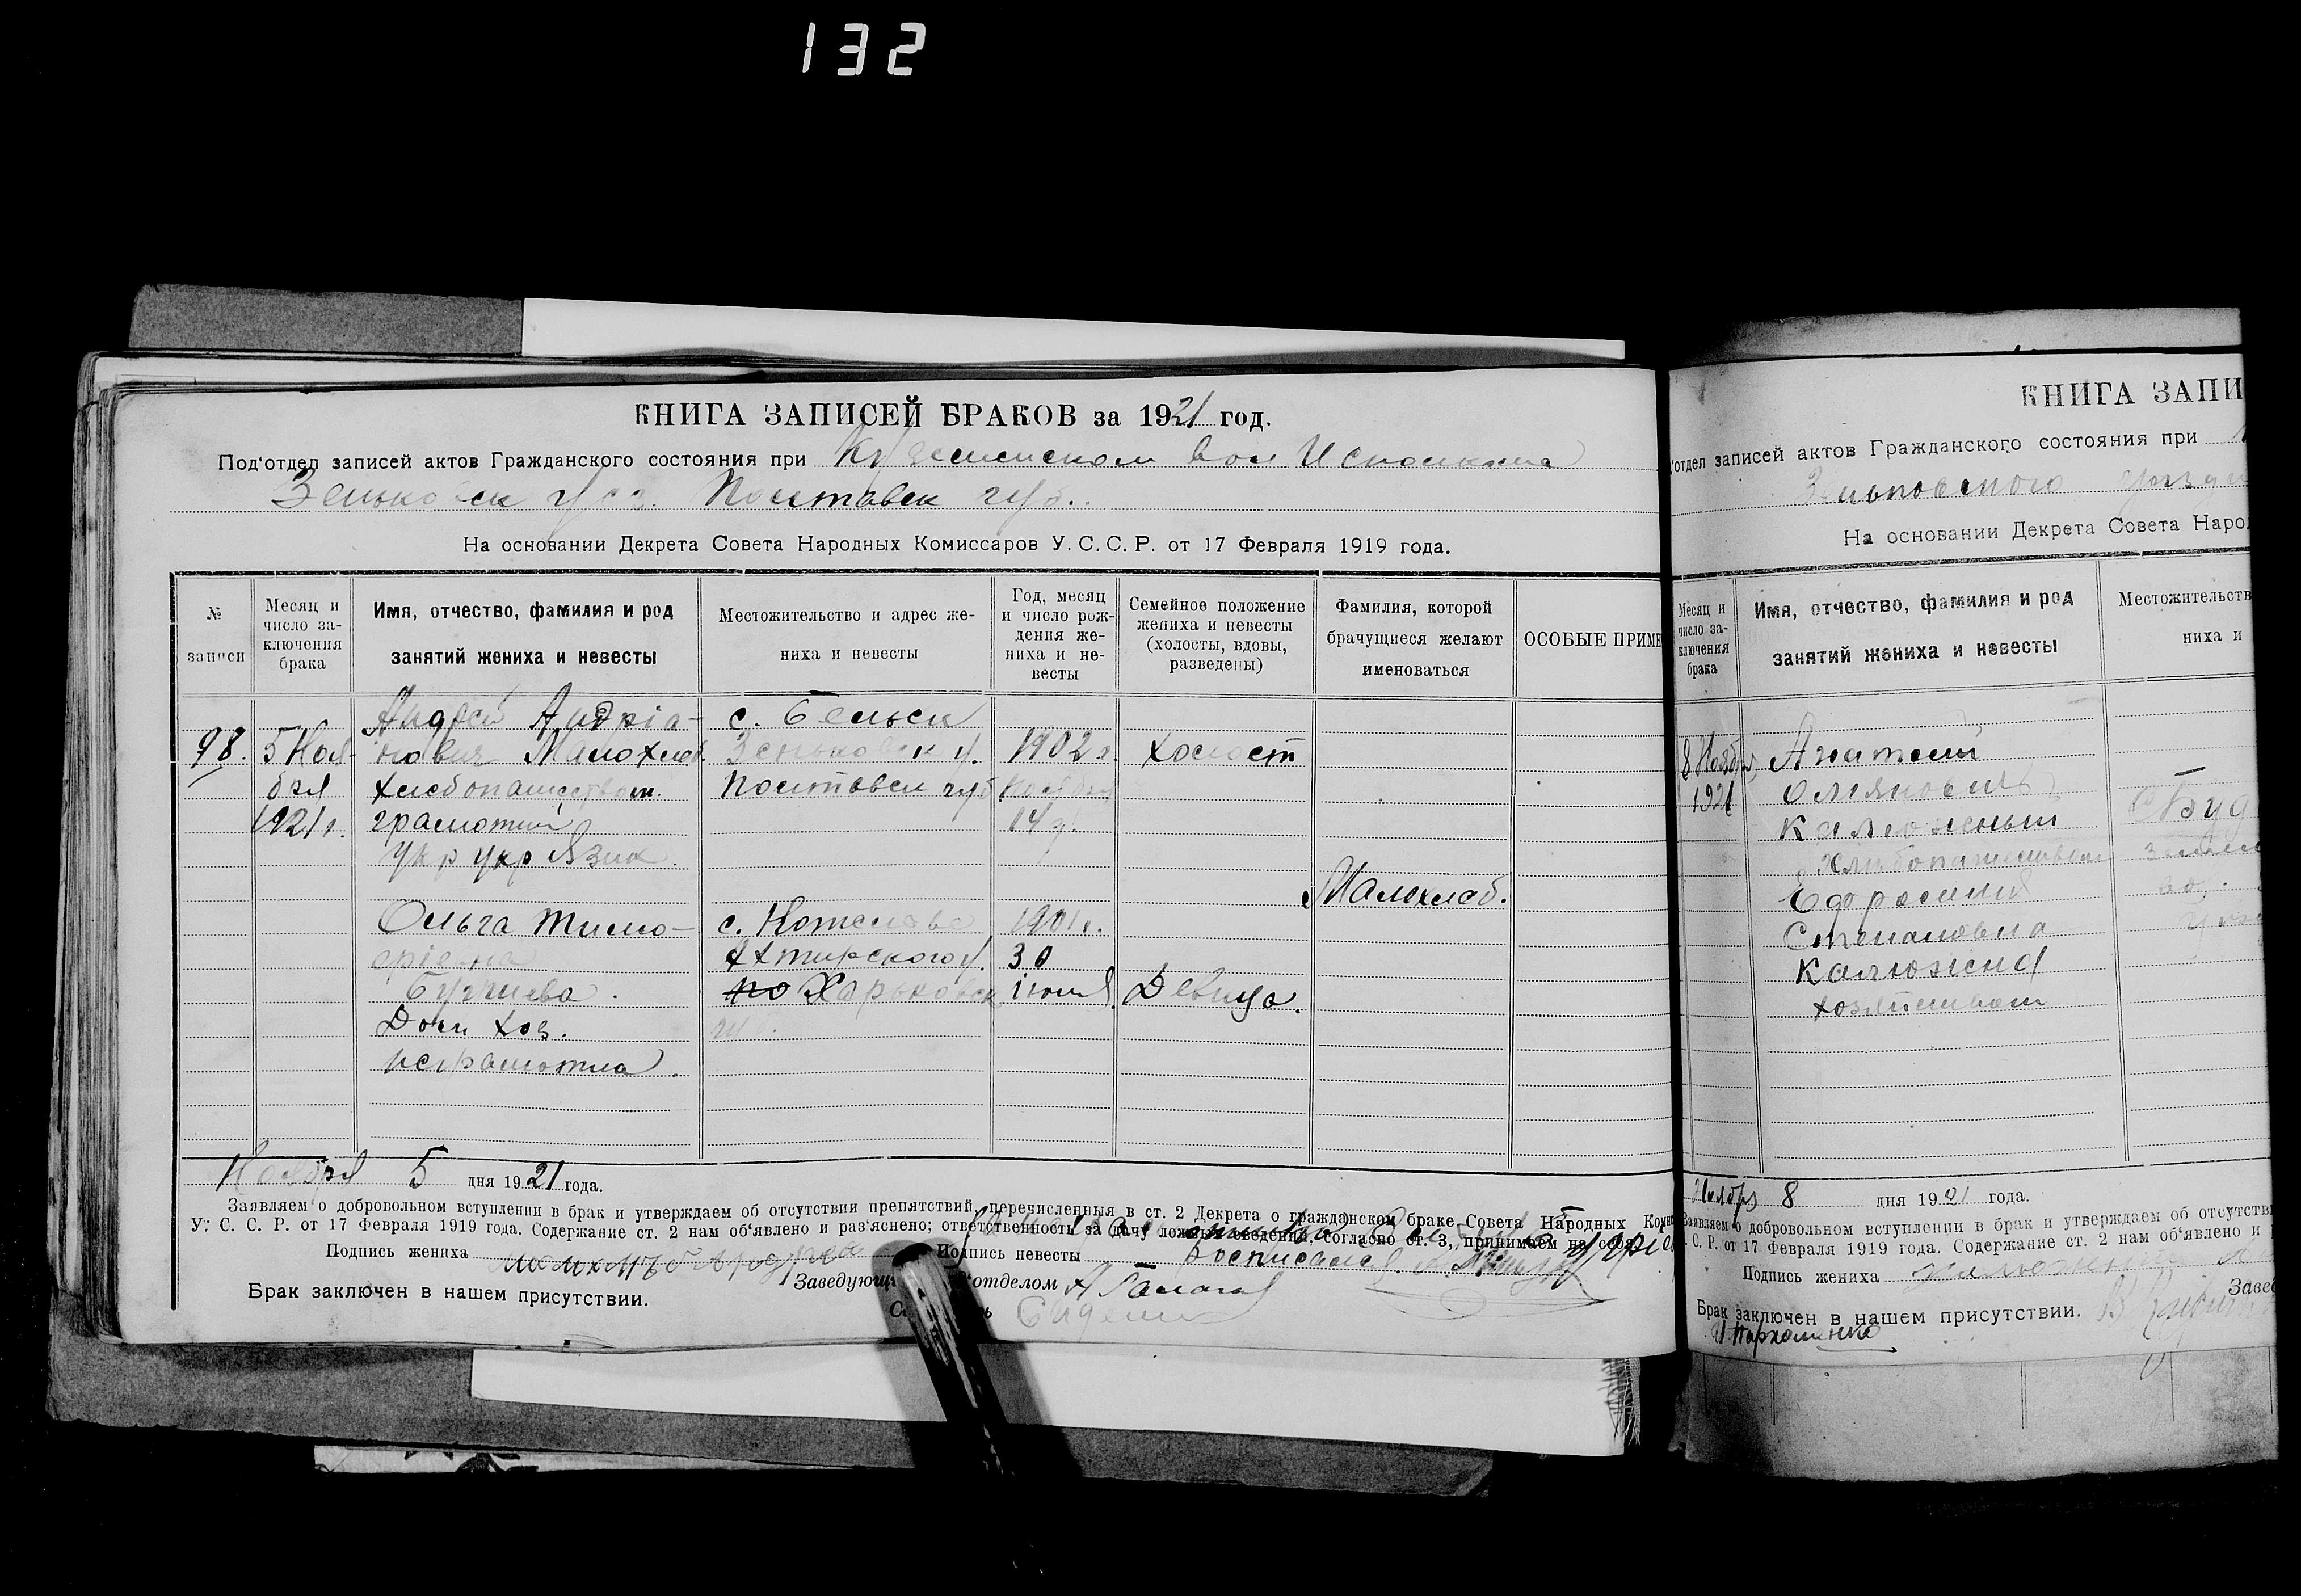 132
КНИГА ЗАПИСЕЙ БРАКОВ за 1921 год.
Под'отдел записей актов Гражданского состояния при Вол Исполкома
Зеньковск уез. Полтавск губ.
На основании Декрета Совета Народных Комиссаров У. С. С. Р. от 17 Февраля 1919 года.
№ записи
Месяц и число за-
ключения
брака
Имя, отчество, фамилия и род
занятий жениха и невесты
Местожительство и адрес же-
ниха и невесты
Год, месяц
и число рож-
дения же-
ниха и не-
весты
Семейное положение
жениха и невесты
(холосты, вдовы,
разведены)
Фамилия, которой
брачущиеся желают
именоваться
ОСОБЫЕ ПРИМЕ
98.
5 Ноя-
бря
1921 г.
Андрей Андріа-
нович Малохлеб.
хлебопашеством.
грамотний
укр укр язик.
с. Бельск
Зеньковск у.
Полтавск губ
1902 г.
Ноября
14 д.
холост
Малохлеб.
Ольга Тимо-
фріевна
Дом хоз.
неграмотна.
с. Котельва
Ахтирского у.
по Харьковск
1901 г.
30
іюня.
Девица.
Ноября 5 дня 1921 года.
Заявляем о добровольном вступлении в брак и утверждаем об отсутствии препятствий, перечисленныя в ст. 2 Декрета о гражданском браке Совета Народных Комис
У. С. С. Р. от 17 Февраля 1919 года. Содержание ст. 2 нам об'явлено и раз'яснено; ответственность за дачу ложных сведений, согласно ст. 3, принимаем на себя
Подпись жениха
Подпись невесты
Брак заключен в нашем присутствии.
Заведующ отделом
КНИГА ЗАПИ
отдел записей актов Гражданского состояния при
Зеньковского уезда
На основании Декрета Совета Наро
Месяц и
число за-
ключения
брака
Имя, отчество, фамилия и род
занятий жениха и невесты
Местожительств
ниха и
8 Ноября
1921
Анатолий
Калюжный
хлибопашеством
Ефросиния
Степановна
Калюжна
хозяйством
Ноябр 8 дня 1921 года.
Заявляем о добровольном вступлении в брак и утверждаем об отсутств
С. Р. от 17 Февраля 1919 года. Содержание ст. 2 нам об'явлено и
Подпись жениха
Завед
Брак заключен в нашем присутствии.
И Пархоменко